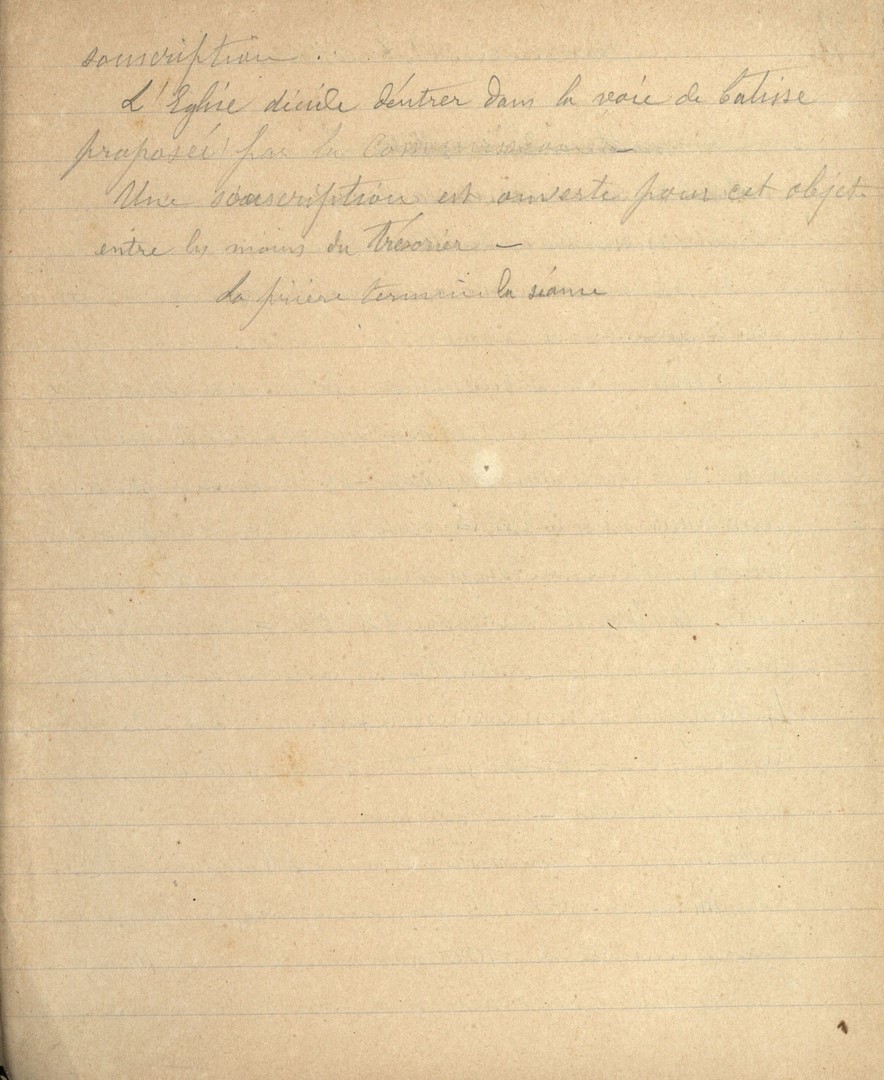 souscription .
L'Eglise décide d'entrer dans la voie de batisse
proposée par la Commission –
Une souscription est ouverte pour cet objet
entre les mains du Trésorier –
La prière termine la séance